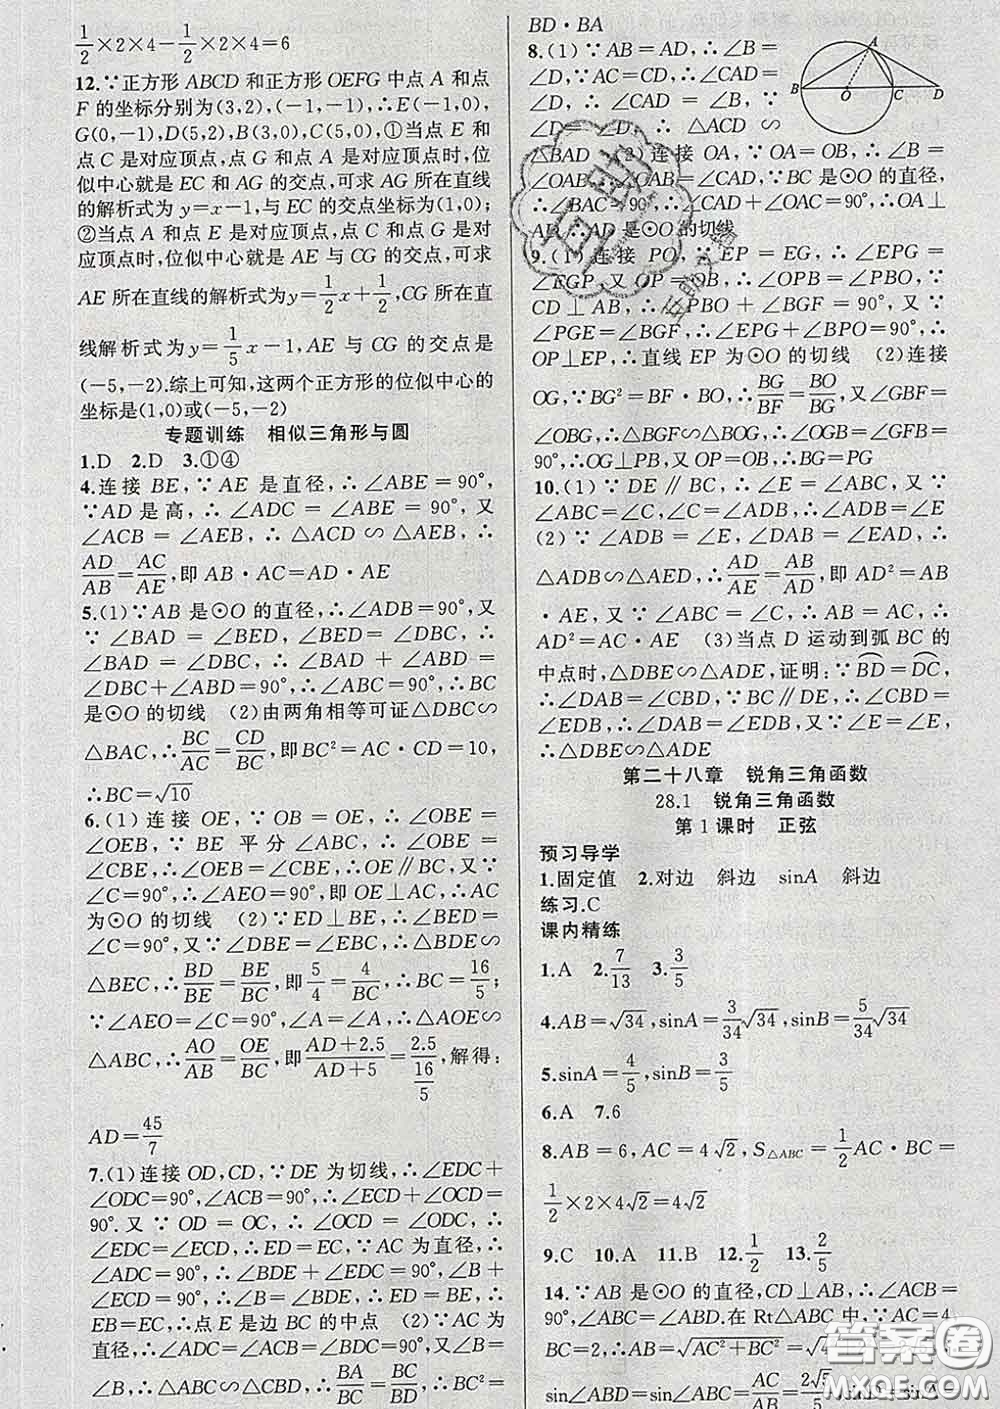 1/2×2×4-1/2×2×4=6
12.∵正方形 ABCD 和正方形 OEFG 中点 A 和点
F 的坐标分别为(3,2),(-1,-1),∴E(-1,0),
G(0,-1),D(5,2),B(3,0),C(5,0),①当点 E 和
点 C 是对应顶点,点 G 和点 A 是对应顶点时,位
似中心就是 EC 和 AG 的交点,可求 AG 所在直线
的解析式为 y=x-1,与 EC 的交点坐标为(1,0);
②当点 A 和点 E 是对应顶点,点 C 和点 G 是对
应顶点时,位似中心就是 AE 与 CG 的交点,可求
AE 所在直线的解析式为y=1/2x+1/2,CG 所在直
线解析式为 y=1/5x-1,AE 与 CG 的交点是
(-5,-2).综上可知,这两个正方形的位似中心的
坐标是(1,0)或(-5,-2)
专题训练 相似三角形与圆
1.D 2.D 3.①④
4.连接 BE,∵AE 是直径,∴∠ABE=90°,
∵AD 是高,∴∠ADC=∠ABE=90°,又
∠ACB=∠AEB,∴△ACD∽△AEB,∴
AD/AB=AC/AE,即 AB·AC=AD·AE
5.(1)∵AB 是⊙O 的直径,∴∠ADB=90°,又
∵∠BAD=∠BED,∠BED=∠DBC,∴
∠BAD=∠DBC,∴∠BAD+∠ABD=
∠DBC+∠ABD=90°,∴∠ABC=90°,∴BC
是⊙O 的切线 (2)由两角相等可证△DBC∽
△BAC,∴BC/AC=CD/BC,即BC²=AC·CD=10,
∴BC=√10
6.(1)连接 OE,∵OB=OE,∴∠OBE=
∠OEB,∵BE 平分∠ABC,∴∠OBE=
∠CBE,∴∠OEB=∠CBE,∴OE∥BC,又∵
∠C=90°,∴∠AEO=90°,即 OE⊥AC,∴AC
为⊙O 的切线 (2)∵ED⊥BE,∴∠BED=
∠C=90°,又∵∠DBE=∠EBC,∴△BDE∽
△BEC,∴BD/BE=BE/BC,即5/4=4/BC,∴BC=16/5;
∵∠AEO=∠C=90°,∠A=∠A,∴△AOE∽
△ABC,∴AO/AB=OE/BC,即(AD+2.5)/(AD+5)=2.5/(16/5),解得:
AD=45/7
7.(1)连接 OD,CD,∵DE 为切线,∴∠EDC+
∠ODC=90°,∠ACB=90°,∴∠ECD+∠OCD=
90°.又∵OD=OC,∴∠OCD=∠ODC,∴
∠EDC=∠ECD,∴ED=EC,∵AC 为直径,∴
∠ADC=90°,∴∠BDE+∠EDC=90°,∠B+
∠ECD=90°,∴∠B=∠BDE,∴ED=BE,∴
EB=EC,∴点 E 是边 BC 的中点 (2)∵AC 为
直径,∴∠ADC=∠ACB=∠BDC=90°,又∠B=
∠B,∴△ABC∽△CBD,∴BA/BC=BC/BD,∴BC²=
BD·BA
8.(1)∵AB=AD,∴∠B=
∠D,∵AC=CD,∴∠CAD=
∠D,∴∠CAD=∠B,∵
∠D=∠D,∴△ACD∽
△BAD (2)连接 OA,∵OA=OB,∴∠B=
∠OAB,∴∠OAB=∠CAD,∵BC 是⊙O 的直径,
∴∠BAC=90°,∴∠CAD+∠OAC=90°,∴OA⊥
AD,∴AD 是⊙O 的切线
9.(1)连接 PO,∵EP=EG,∴∠EPG=
∠EGP,又 OP=OB,∴∠OPB=∠PBO,∵
CD⊥AB,∴∠PBO+∠BGF=90°,又∵
∠PGE=∠BGF,∴∠EPG+∠BPO=90°,∴
OP⊥EP,∴直线 EP 为⊙O 的切线 (2)连接
OG,∵BG²=BF·BO,∴BG/BF=BO/BG,又∠GBF=
∠OBG,∴△BFG∽△BGO,∴∠BGO=∠GFB=
90°,∴OG⊥PB,又 OP=OB,∴BG=PG
10.(1)∵DE∥BC,∴∠E=∠ABC,又∵
∠ABC=∠C,∠C=∠ADB,∴∠ADB=∠E
(2)∵∠ADB=∠E,∠DAB=∠EAD,∴
△ADB∽△AED,∴AD/AE=AB/AD,即 AD²=AB
·AE,又∵∠ABC=∠C,∴AB=AC,∴
AD²=AC·AE (3)当点 D 运动到弧 BC 的
中点时,△DBE∽△ADE,证明:∵BD=DC,
∴∠DAB=∠CAD,∵BC∥DE,∴∠CBD=
∠EDB,∴∠DAB=∠EDB,又∵∠E=∠E,
∴△DBE∽△ADE
第二十八章 锐角三角函数
28.1 锐角三角函数
第 1 课时 正弦
预习导学
1.固定值 2.对边 斜边 sinA 斜边
练习.C
课内精练
1.A 2.7/13 3.3/5
4.AB=√34,sinA=3/34√34,sinB=5/34√34
5.sinA=4/5,sinB=3/5
6.A 7.6
8.AB=6,AC=4√2,S△ABC=1/2AC·BC=
1/2×2×4√2=4√2
9.C 10.A 11.B 12.1/2 13.2/5
14.∵AB 是⊙O 的直径,CD⊥AB,∴∠ACB=
90°,∠ABC=∠ABD.在 Rt△ABC 中,∵AC=4
BC=2,∴AB=√AC²+BC²=√4
sin∠ABD=sin∠ABC=AC/AB=2√5/5
A
B
O
C
D
答案圈
MXQE.COM